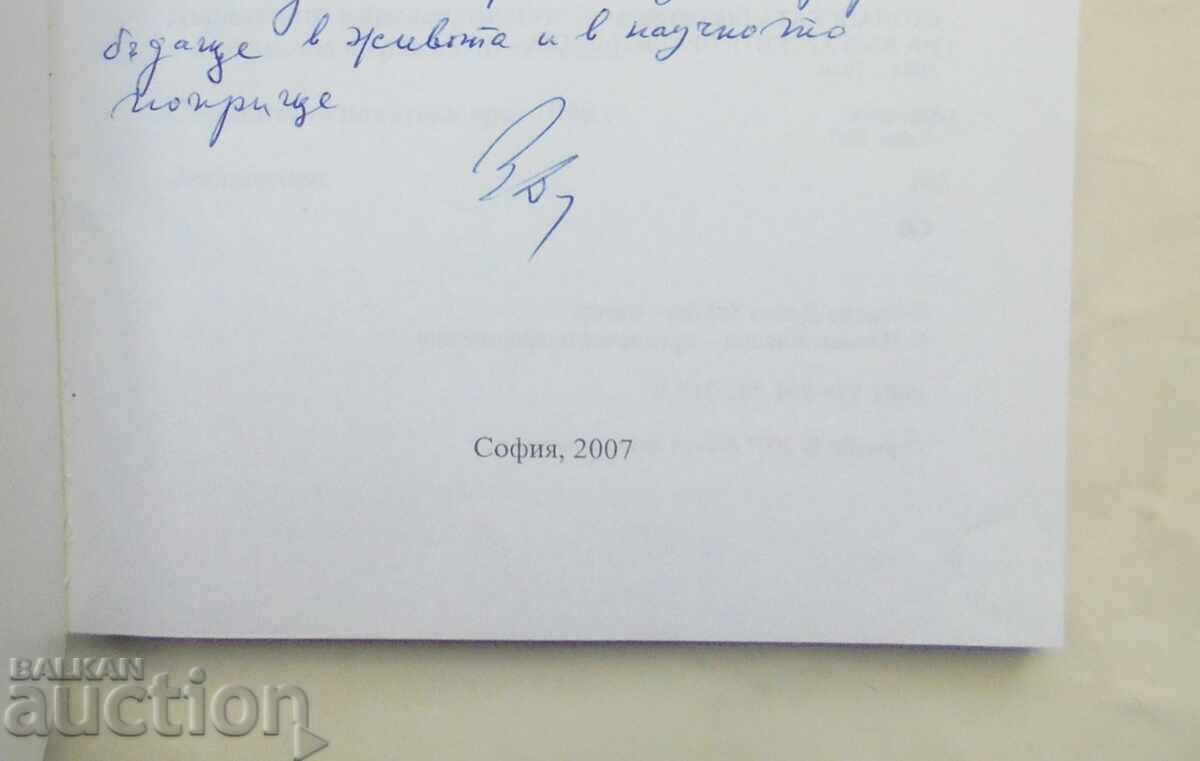 бъдаще в живота и в научното
поприще
София, 2007
BALKAN
auction